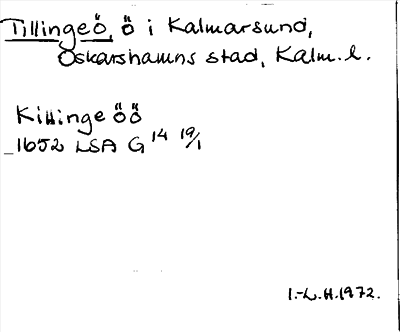 Tillingeö, ö i Kalmarsund,
Oskarshamns stad, Kalm. l.
Killinge öö
1652 LSA G 14 19/1
I.-L.H.1972.